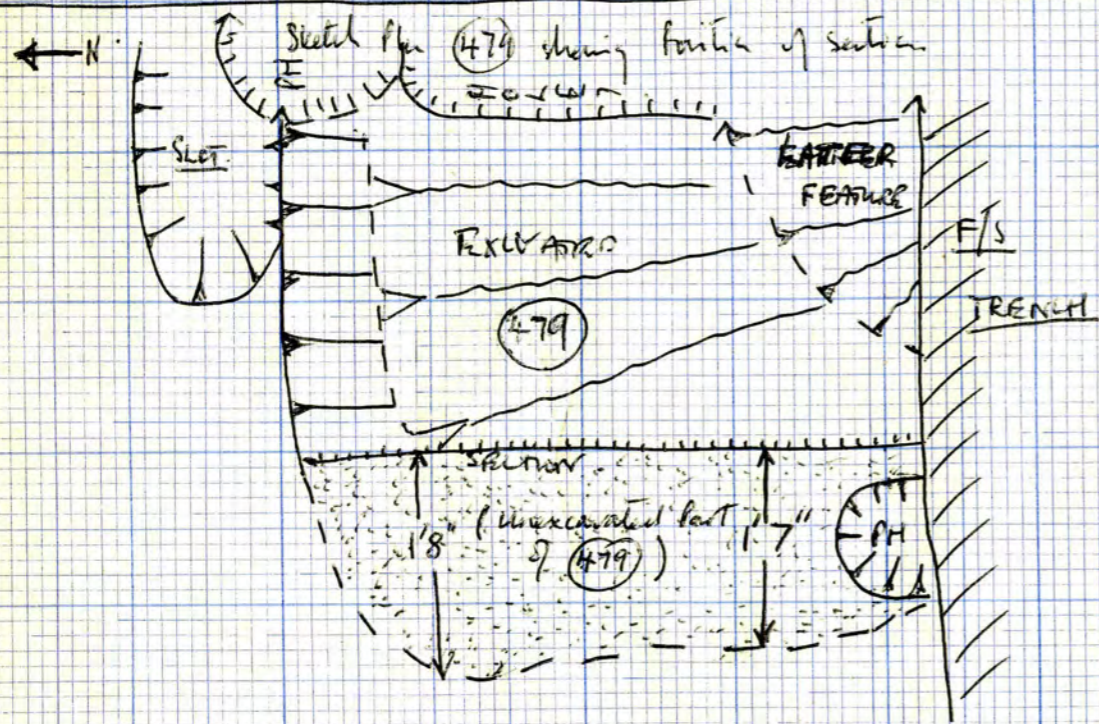 N
Sketch Plan 479 showing Position of section
PH
SLOT
EARLIER
FEATURE
EXCVATED
F/S
479
TRENCH
SECTION
1'8" (unexcavated Part 1'7"
of 479)
PH